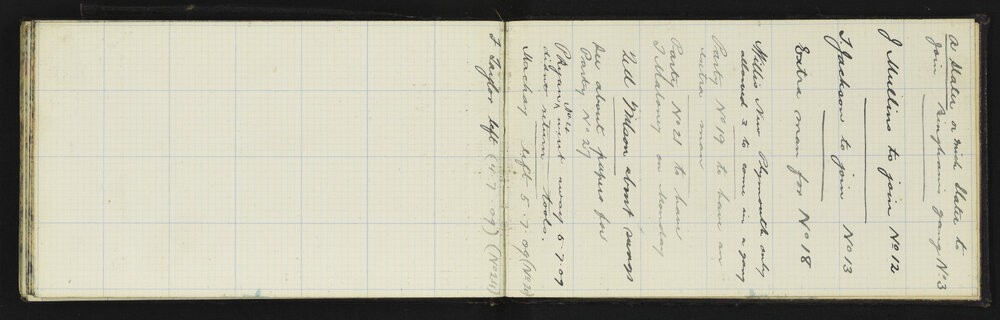 A Slater or Mick Slater to
join Binghams gang No 3
J Mullins to join No 12
T Jackson to join No 13
Extra man for No 18
Willis New Plymouth only
allowed 2 to come in a gang
Party No 19 to have an
extra man
Party No 21 to have
J Maloney on Monday
Ted Wilson about swags
See about papers for
Party No 27
P Ryan No 4 went away 5.7.09
didnt return tools.
Mackay left 5.7.09 (No 24)
F Taylor left (4.7.09)